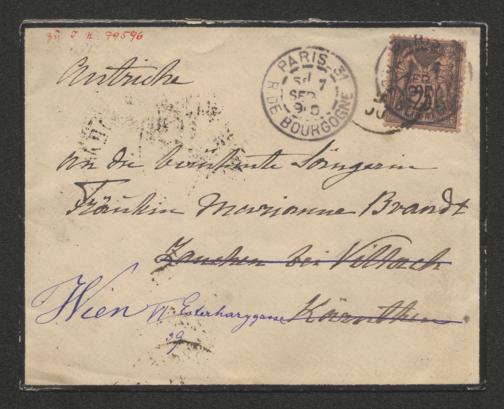 zu I. N. 79596
Autriche
PARIS 31
R. DE BOURGOGNE
7
SEPT
90
25
An die berühmte Sängerin
Fräulein Marianne Brandt
Zauchen bei Villach
Wien VI Esterhazygasse Kärnthen
29